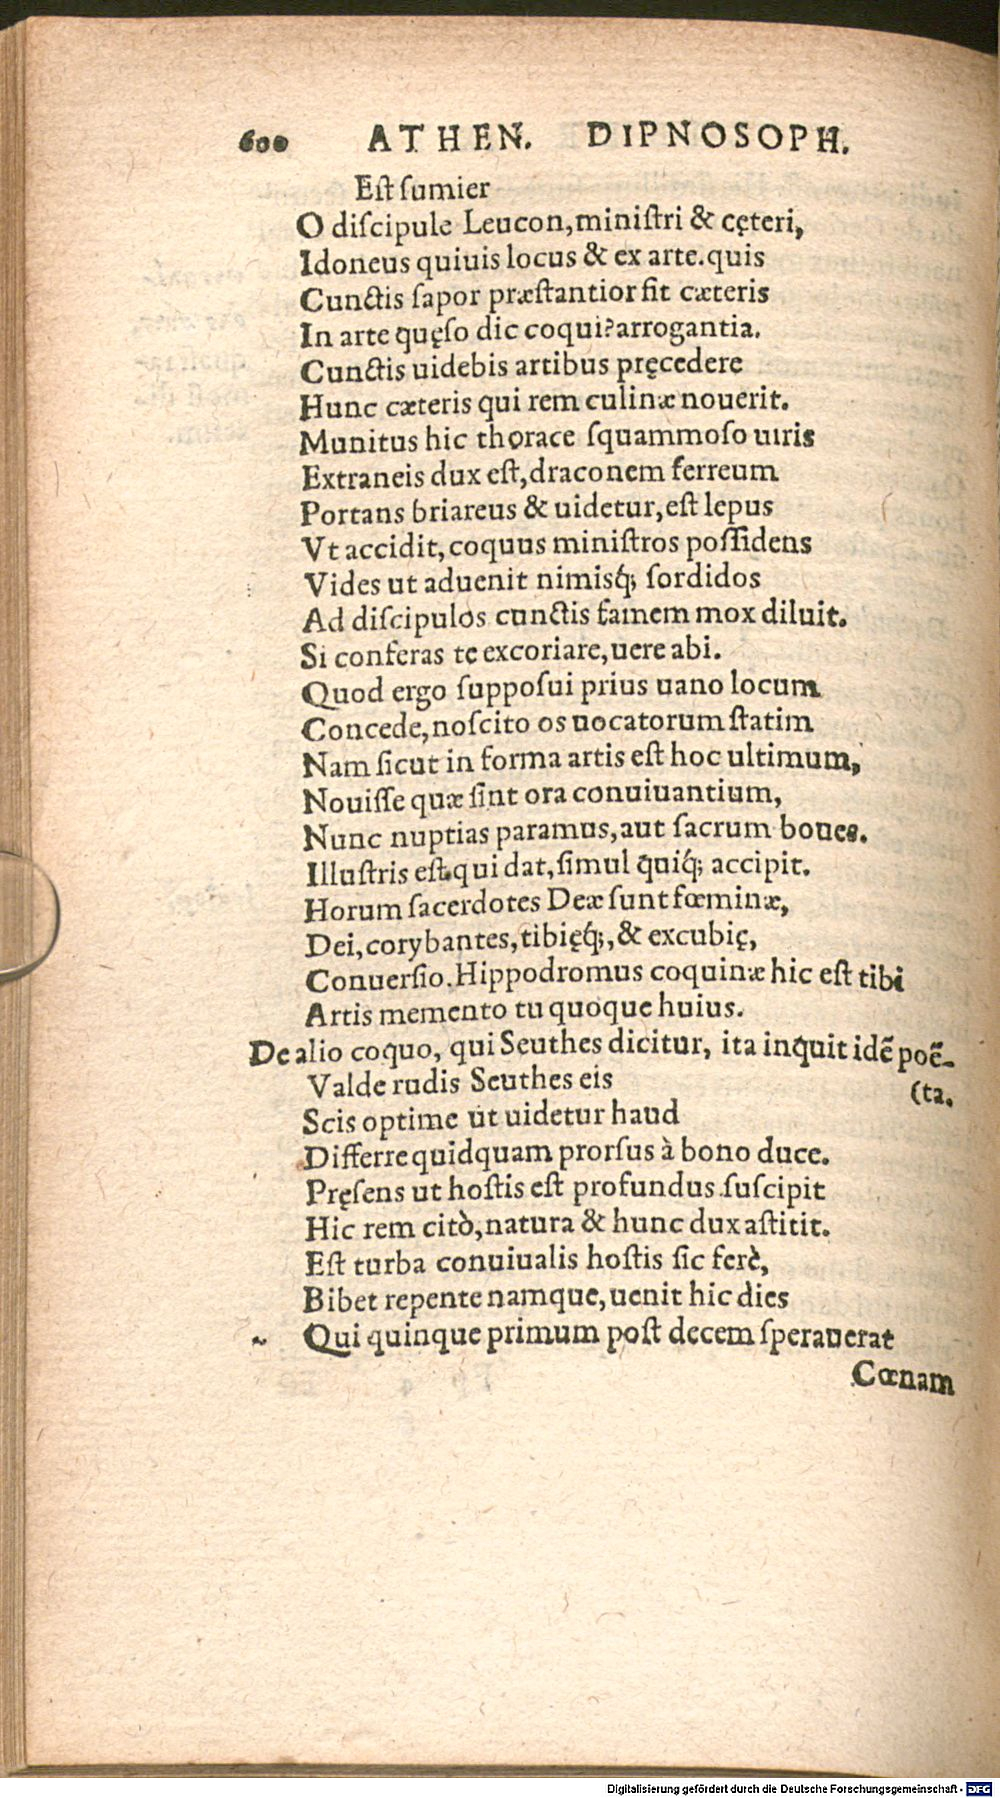 600 ATHEN. DIPNOSOPH.
Est sumier
O discipule Leucon, ministri & cęteri,
Idoneus quiuis locus & ex arte. quis
Cunctis sapor præstantior sit cæteris
In arte quęso dic coqui? arrogantia.
Cunctis uidebis artibus pręcedere
Hunc cæteris qui rem culinæ nouerit.
Munitus hic thorace squammoso uiris
Extraneis dux est, draconem ferreum
Portans briareus & uidetur, est lepus
Vt accidit, coquus ministros possidens
Vides ut aduenit nimisq́; sordidos
Ad discipulos cunctis famem mox diluit.
Si conferas te excoriare, uere abi.
Quod ergo supposui prius uano locum
Concede, noscito os uocatorum statim
Nam sicut in forma artis est hoc ultimum,
Nouisse quæ sint ora conuiuantium,
Nunc nuptias paramus, aut sacrum boues.
Illustris est qui dat, simul quiq́; accipit.
Horum sacerdotes Deæ sunt fœminæ,
Dei, corybantes, tibięq́;, & excubię,
Conuersio. Hippodromus coquinæ hic est tibi
Artis memento tu quoque huius.
De alio coquo, qui Seuthes dicitur, ita inquit idẽ poẽ-
(ta.
Valde rudis Seuthes eis
Scis optime ut uidetur haud
Differre quidquam prorsus à bono duce.
Pręsens ut hostis est profundus suscipit
Hic rem citò, natura & hunc dux astitit.
Est turba conuiualis hostis sic ferè,
Bibet repente namque, uenit hic dies
~ Qui quinque primum post decem sperauerat
Cœnam
Digitalisierung gefördert durch die Deutsche Forschungsgemeinschaft - DFG